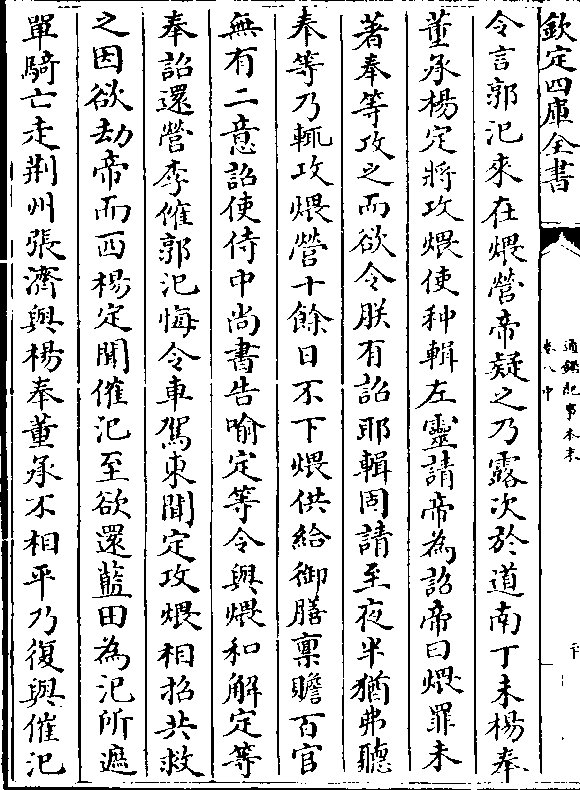 欽定四庫全書
通鑑紀事本末
卷八中
令言郭汜來在煨營帝疑之乃露次於道南丁未楊奉
董承楊定將攻煨使种輯左靈請帝為詔帝曰煨罪未
著奉等攻之而欲令朕有詔耶輯固請至夜半猶弗聽
奉等乃輒攻煨營十餘日不下煨供給御膳稟贍百官
無有二意詔使侍中尚書告喻定等令與煨和解定等
奉詔還營李傕郭汜悔令車駕東聞定攻煨相招共救
之因欲劫帝而西楊定聞傕汜至欲還藍田為汜所遮
單騎亡走荆州張濟與楊奉董承不相平乃復與傕汜